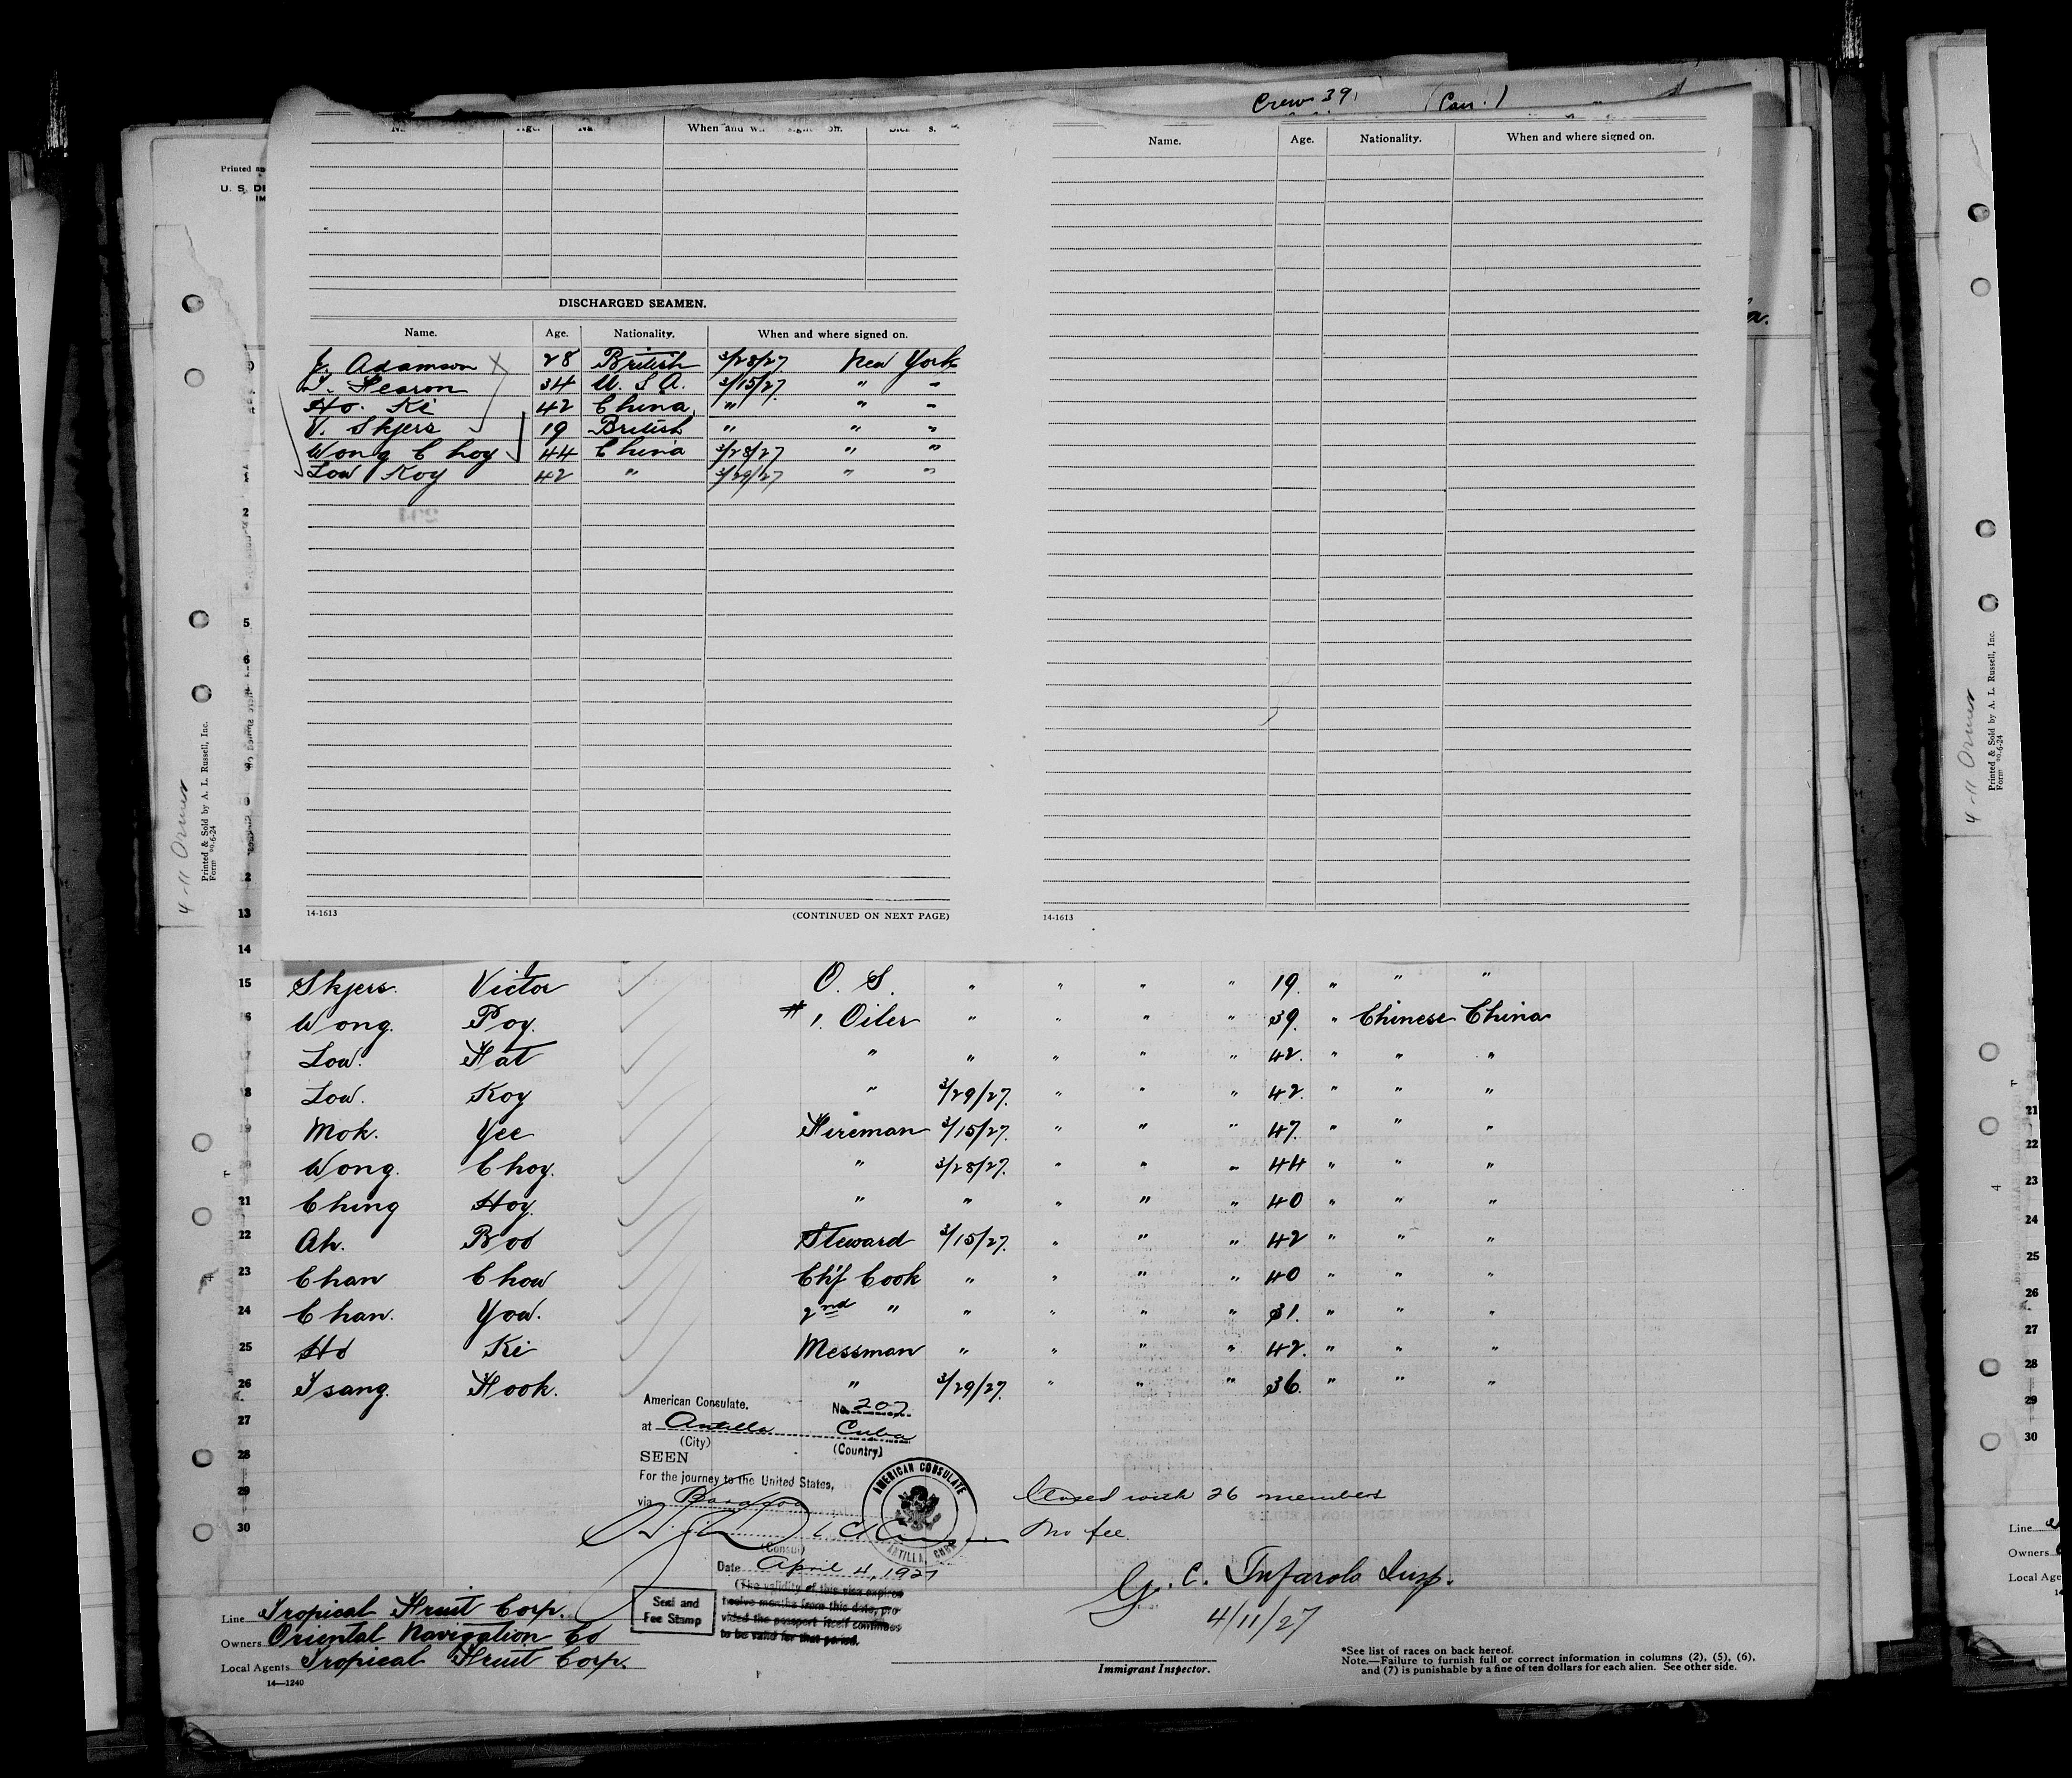 Crew 39
Printed an
U. S. DE
IM
When and
Name. Age. Nationality. When and where signed on.
DISCHARGED SEAMEN.
Name. Age. Nationality. When and where signed on.
J. Adamson 28 British 3/28/27 New York
Searon 34 U. S. A. 3/15/27 " "
Ho. Ki 42 China " " "
V. Skjers 19 British " " "
Wong Choy 44 China 3/28/27 " "
Low Koy 42 " 3/29/27 " "
14-1613 (CONTINUED ON NEXT PAGE) 14-1613
13
14
15 Skjers. Victor O. S. " " " " 19. " " "
16 Wong. Poy. # 1. Oiler " " " " 39. " Chinese China
17 Low. Fat " " " " " 42. " " "
18 Low. Koy " 3/29/27. " " " 42. " " "
19 Mok. Yee Fireman 3/15/27. " " " 47. " " "
20 Wong. Choy. " 3/28/27. " " " 44 " " "
21 Ching Hoy. " " " " " 40 " " "
22 Ah. Boo Steward 3/15/27. " " " 42 " " "
23 Chan Chow Chf Cook " " " " 40 " " "
24 Chan. Yow. 2nd " " " " " 31. " " "
25 Ho Ki Messman " " " " 42. " " "
26 Tsang. Hook. " 3/29/27. " " " 36. " " "
27
28
29
30
American Consulate. No. 207
at Antilla Cuba
(City) (Country)
SEEN
For the journey to the United States,
via
(Consul)
AMERICAN CONSULATE
ANTILLA, CUBA
Date April 4, 1927
(The validity of this visa expires
twelve months from this date, pro
vided the passport itself continues
to be valid for that period.
Seal and
Fee Stamp
Closed with 26 members
No fee.
G. C. Insp.
4/11/27
Immigrant Inspector.
Line Tropical Fruit Corp.
Owners Oriental Navigation Co
Local Agents Tropical Fruit Corp.
14—1240
*See list of races on back hereof.
Note.—Failure to furnish full or correct information in columns (2), (5), (6),
and (7) is punishable by a fine of ten dollars for each alien. See other side.
Printed & Sold by A. L. Russell, Inc.
Printed & Sold by A. L. Russell, Inc.
21
22
23
24
25
26
27
28
29
30
Line
Owners
Local Age